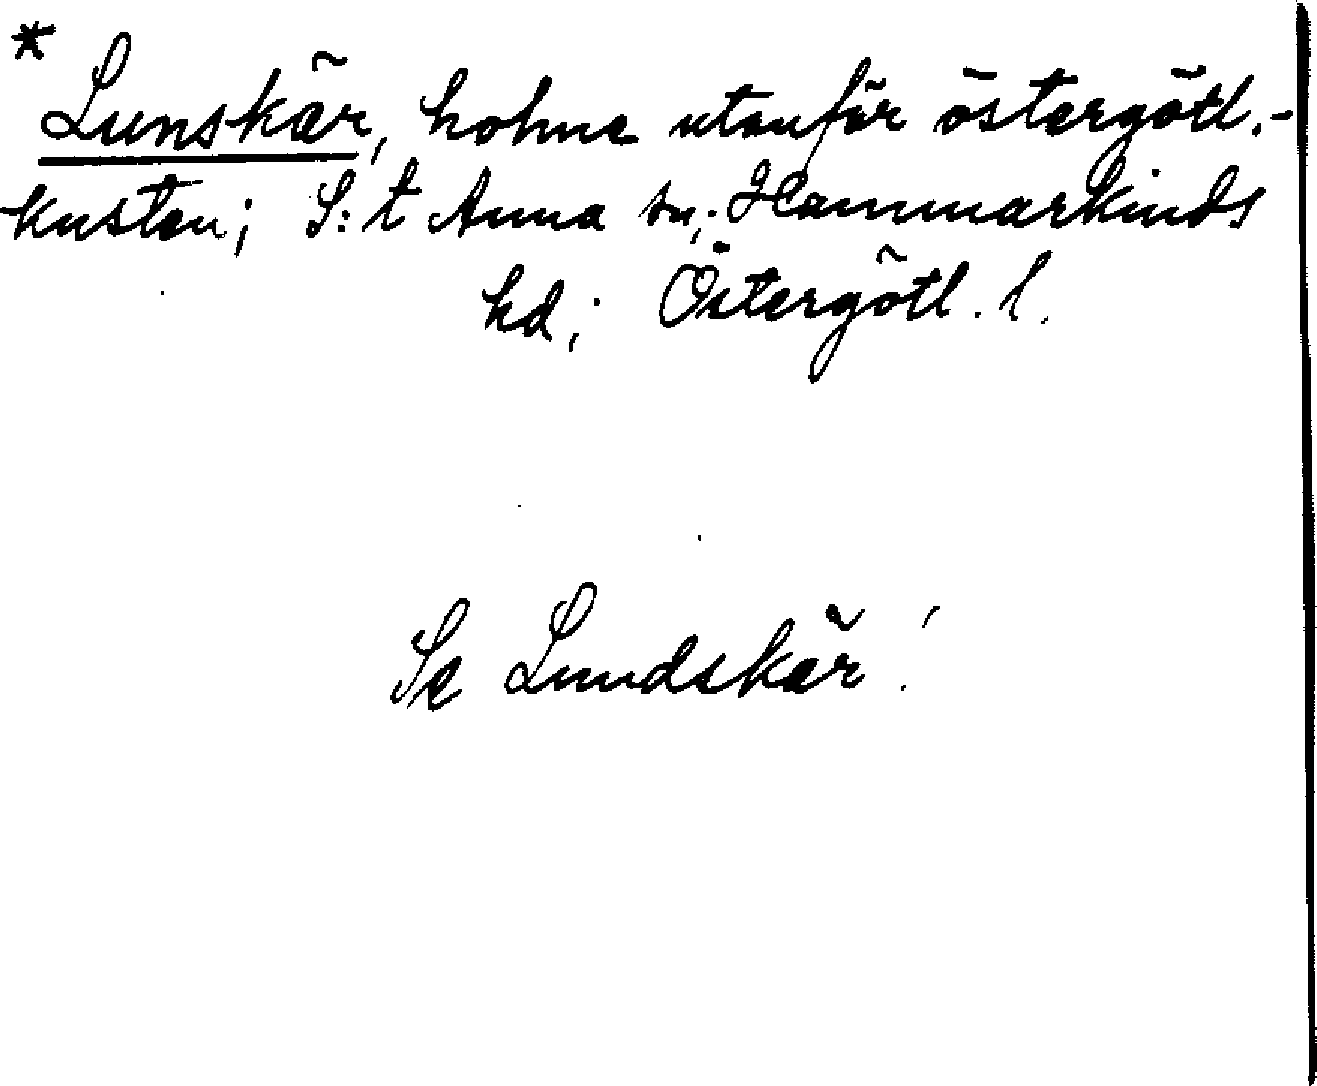 * Lunskär, holme utanför östergötl.-
kusten; S:t Anna sn; Hammarkinds
hd; Östergötl. l.
Se Lundskär!